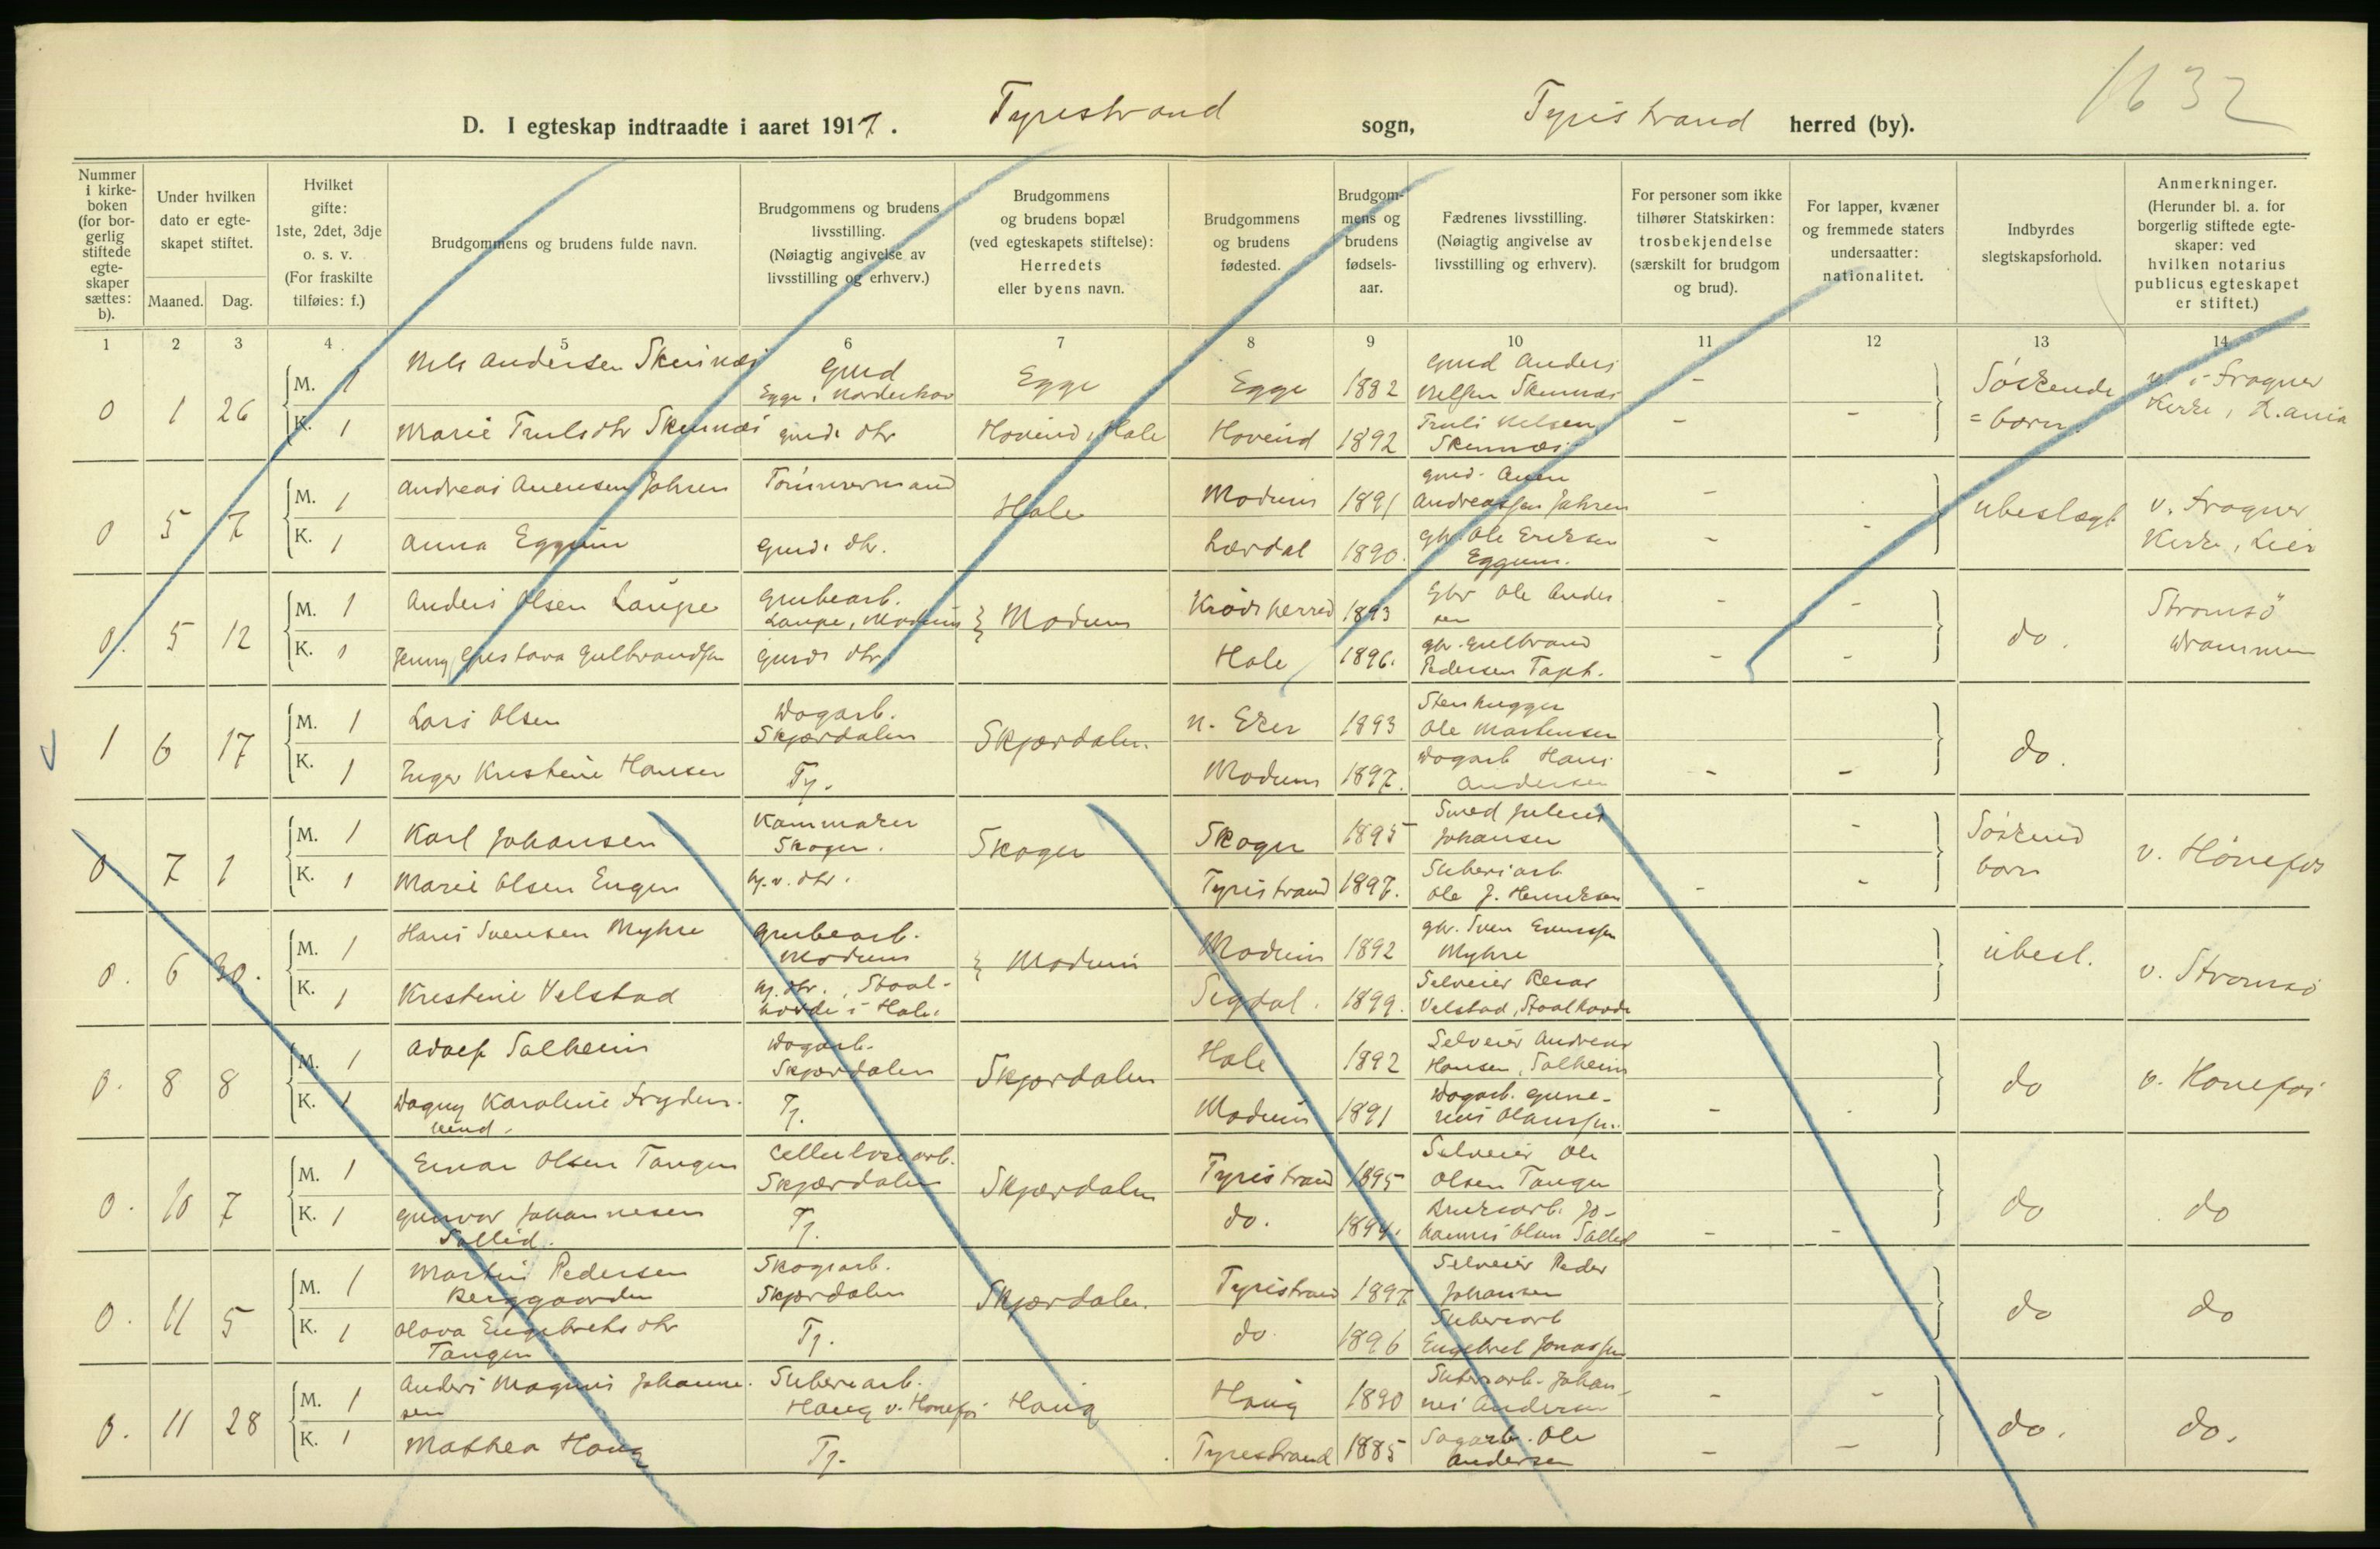 1632
D. I egteskap indtraadte i aaret 1917. Tyristrand sogn, Tyristrand herred (by).
Nummer i kirkeboken (for borgerlig stiftede egteskaper sættes: b).
Under hvilken dato er egteskapet stiftet.
Maaned. Dag.
Hvilket gifte: 1ste, 2det, 3dje o. s. v. (For fraskilte tilføies: f.)
Brudgommens og brudens fulde navn.
Brudgommens og brudens livsstilling. (Nøiagtig angivelse av livsstilling og erhverv.)
Brudgommens og brudens bopæl (ved egteskapets stiftelse): Herredets eller byens navn.
Brudgommens og brudens fødested.
Brudgommens og brudens fødselsaar.
Fædrenes livsstilling. (Nøiagtig angivelse av livsstilling og erhverv).
For personer som ikke tilhører Statskirken: trosbekjendelse (særskilt for brudgom og brud).
For lapper, kvæner og fremmede staters undersaatter: nationalitet.
Indbyrdes slegtskapsforhold.
Anmerkninger. (Herunder bl. a. for borgerlig stiftede egteskaper: ved hvilken notarius publicus egteskapet er stiftet.)
1 2 3 4 5 6 7 8 9 10 11 12 13 14
0 1 26
M. 1 Nils Andersen Skinnæs Gmd Egge, Norderhov Egge Egge 1882 Gmd Anders Nelsen - Søskende
K. 1 Marie Trulsdtr gmds dtr Hovind, Hole Hovind 1892 Truls Nelsen - - = børn. v. i Frogner Kirke, K.ania
0 5 7
M. 1 Andreas Jahren Tømmermand Hole Modum 1891 gmd. Andreassen Jahren -
K. 1 Anna Eggum Gmds dtr. Lærdal 1890. Ole Eriksen Eggum. - - ubeslægt v. Frogner Kirke, Lier
0. 5 12
M. 1 Anders Olsen Laupe Grubearb. Laupe, Modum } Modum Krødsherred 1893 Gbr Ole Andersen - -
K. 1 Jenny Gustava Gulbrandsen Gmds dtr. Hole 1896. gbr. Gulbrand Pedersen - - do. Strømsö Drammen
1 6 17
M. 1 Lars Olsen Dagarb. Skjærdalen Skjærdalen. n. Eker 1893 Stenhugger Ole Martinsen
K. 1 Inger Kristine Hansen Tj. Modum 1897. Dagarb Hans Andersen - - do.
0 7 1
M. 1 Karl Johansen Skoger. Skoger Skoger 1895 Smed Julius Johansen - Søskend
K. 1 Marie Olsen Engen hj. v. dtr. Tyristrand 1897. Sliberiarb Ole J. Henriksen - - børn v. Hønefos
0. 6 30.
M. 1 Hans Svensen Myhre Grubearb. Modum } Modum Modum 1892 gbr. Sven Myhre
K. 1 Kristine Velstad hj. dtr. i Hole. Sigdal. 1899. Selveier Velstad, ubesl. v. Strømsø
0. 8 8
M. 1 Adolf Solheim Dagarb. Skjærdalen Skjærdalen Hole 1892 Selveier Andreas Hansen, Solheim
K. 1 Dagny Karoline Frydenlund. Tj. Modum 1891 Dagarb. - - do v. Hønefos
0. 10 7
M. 1 Einar Olsen Tangen Cellulosearb. Skjærdalen Skjærdalen Tyristrand 1895 Selveier Ole Olsen Tangen
K. 1 Gunvor Johannesen Tj. do. 1894. Bruksarb. Johannes Olsen - - do do
0. 11 5
M. 1 Martin Pedersen Berggaarden Skogsarb. Skjærdalen Skjærdalen. Tyristrand 1897 Selveier Peder Johansen
K. 1 Olava Engebrets dtr Tangen Tj. do. 1896 Sliberiarb Engebret Jonassen do do
0. 11 28
M. 1 Anders Magnus Johannesen Sliberiarb. Haug v. Hønefos Haug Haug 1890 Sliberiarb. Johannes Andersen - -
K. 1 Mathea Haug Tj. Tyristrand 1885 Sagarb. Ole Andersen - - do. do.